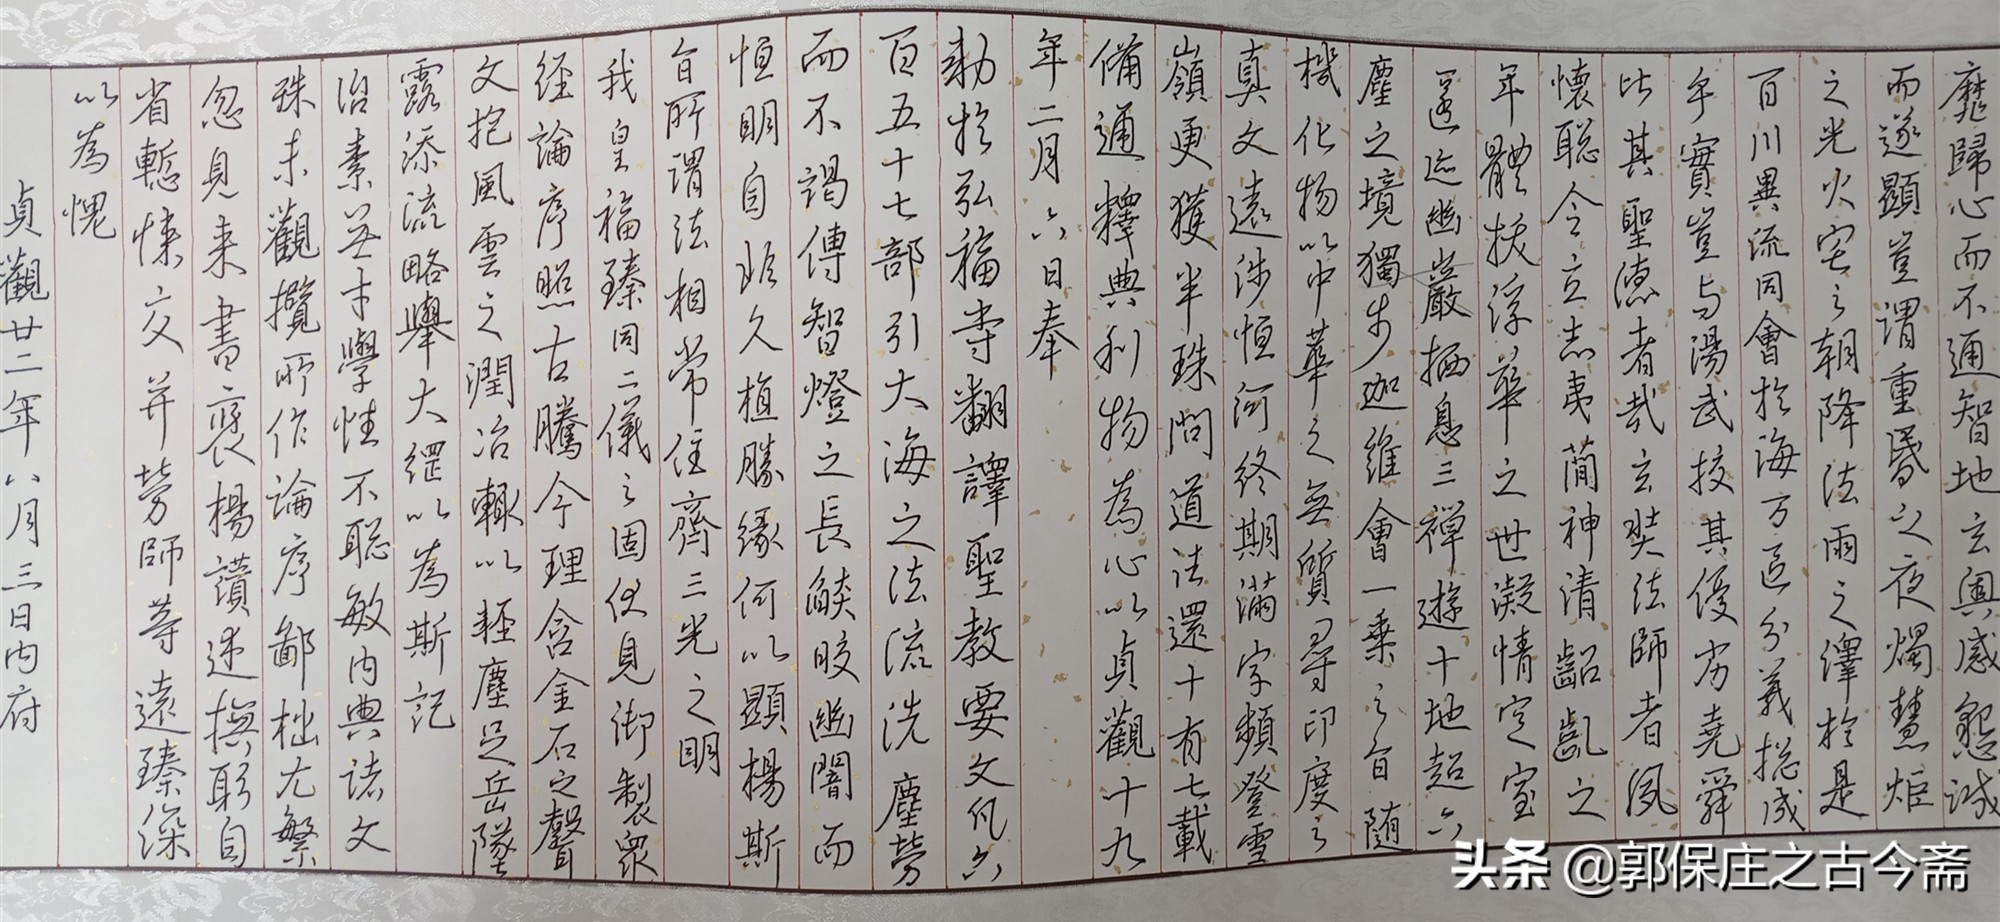 靡歸心而不通智地玄奧感懇誠
而遂顯豈謂重昏之夜燭慧炬
之光火宅之朝降法雨之澤於是
百川異流同會於海万區分義總成
乎實豈与湯武挍其優劣堯舜
比其聖德者哉玄奘法師者夙
懷聡令立志夷蕳神清齠齔之
年體拔浮華之世凝情定室
遁迹幽巖栖息三禪遊十地超六
塵之境獨步迦維會一乘之旨随
機化物以中華之無質尋印度之
真文遠涉恒河終期滿字頻登雪
嶺更獲半珠問道法還十有七載
備通釋典利物為心以貞觀十九
年二月六日奉
勅於弘福寺翻譯聖教要文凡六
百五十七部引大海之法流洗塵勞
而不竭傳智燈之長燄皎幽闇而
恒明自非久植勝緣何以顯楊斯
旨所謂法相常住齊三光之明
我皇福臻同二儀之固伏見御製衆
経論序照古騰今理含金石之聲
文抱風雲之潤治輙以輕塵足岳墜
露添流略舉大綱以為斯記
治素無才學性不聡敏内典諸文
殊未觀攬所作論序鄙拙尤繁
忽見来書褒楊讃述撫躬自
省慙悚交并勞師等遠臻深
以為愧
貞觀廿二年八月三日内府
头条 @郭保庄之古今斋